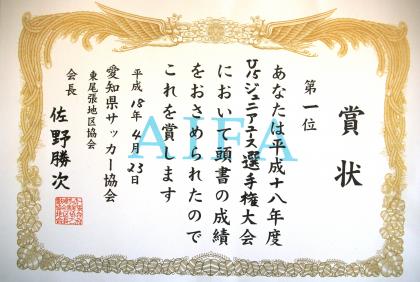 賞状
第一位
あなたは平成十八年度
U15ジュニアユース選手権大会
において頭書の成績
をおさめられたので
これを賞します
平成18年4月23日
愛知県サッカー協会
東尾張地区協会
会長 佐野勝次
AIFA